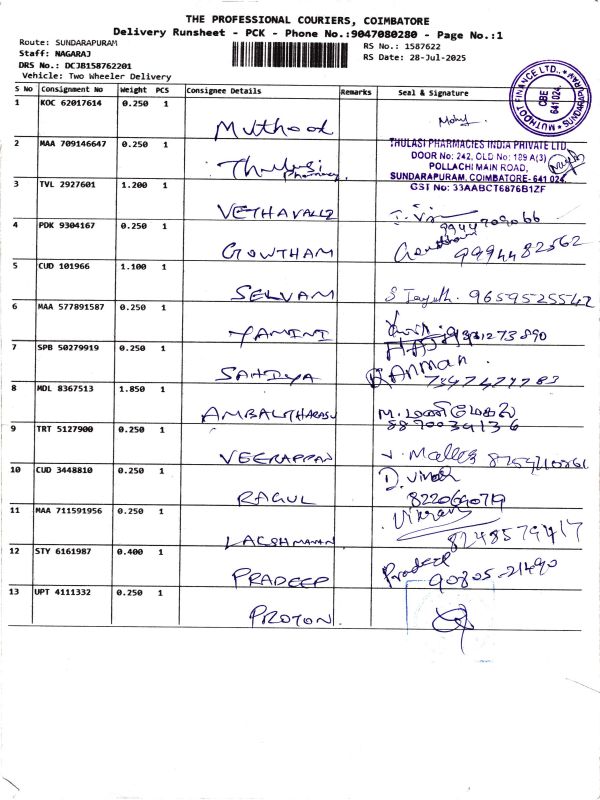 THE PROFESSIONAL COURIERS, COIMBATORE
Delivery Runsheet - PCK - Phone No.:9047080280 - Page No.:1
Route: SUNDARAPURAM
RS No.: 1587622
Staff: NAGARAJ
RS Date: 28-Jul-2025
DRS No.: DCJB158762201
Vehicle: Two Wheeler Delivery
MUTHOOT FINANCE LTD., SUNDARAPURAM
CBE
641 024.
S No Consignment No Weight PCS Consignee Details Remarks Seal & Signature
1 KOC 62017614 0.250 1 Muthoot Mohj
2 MAA 709146647 0.250 1 Thulasi Pharmacy
THULASI PHARMACIES INDIA PRIVATE LTD
DOOR No: 242, OLD No: 189 A(3)
POLLACHI MAIN ROAD,
SUNDARAPURAM, COIMBATORE- 641 024.
GST No: 33AABCT6876B1ZF
3 TVL 2927601 1.200 1 VETHAVALLI 9944709066
4 PDK 9304167 0.250 1 GOWTHAM Gowtham 9994482562
5 CUD 101966 1.100 1 SELVAM S Jayath. 9659525542
6 MAA 577891587 0.250 1 YAMINI
7 SPB 50279919 0.250 1 SANDYA
8 MDL 8367513 1.850 1 AMBALITHARASU M. மணிமேகலை
8870034136
9 TRT 5127900 0.250 1 VEERAPPAN
10 CUD 3448810 0.250 1 RAGUL D. Vinoth
11 MAA 711591956 0.250 1 LACSHMANAN Vikram
8248579417
12 STY 6161987 0.400 1 PRADEEP Pradeep
90805-21490
13 UPT 4111332 0.250 1 PROTON